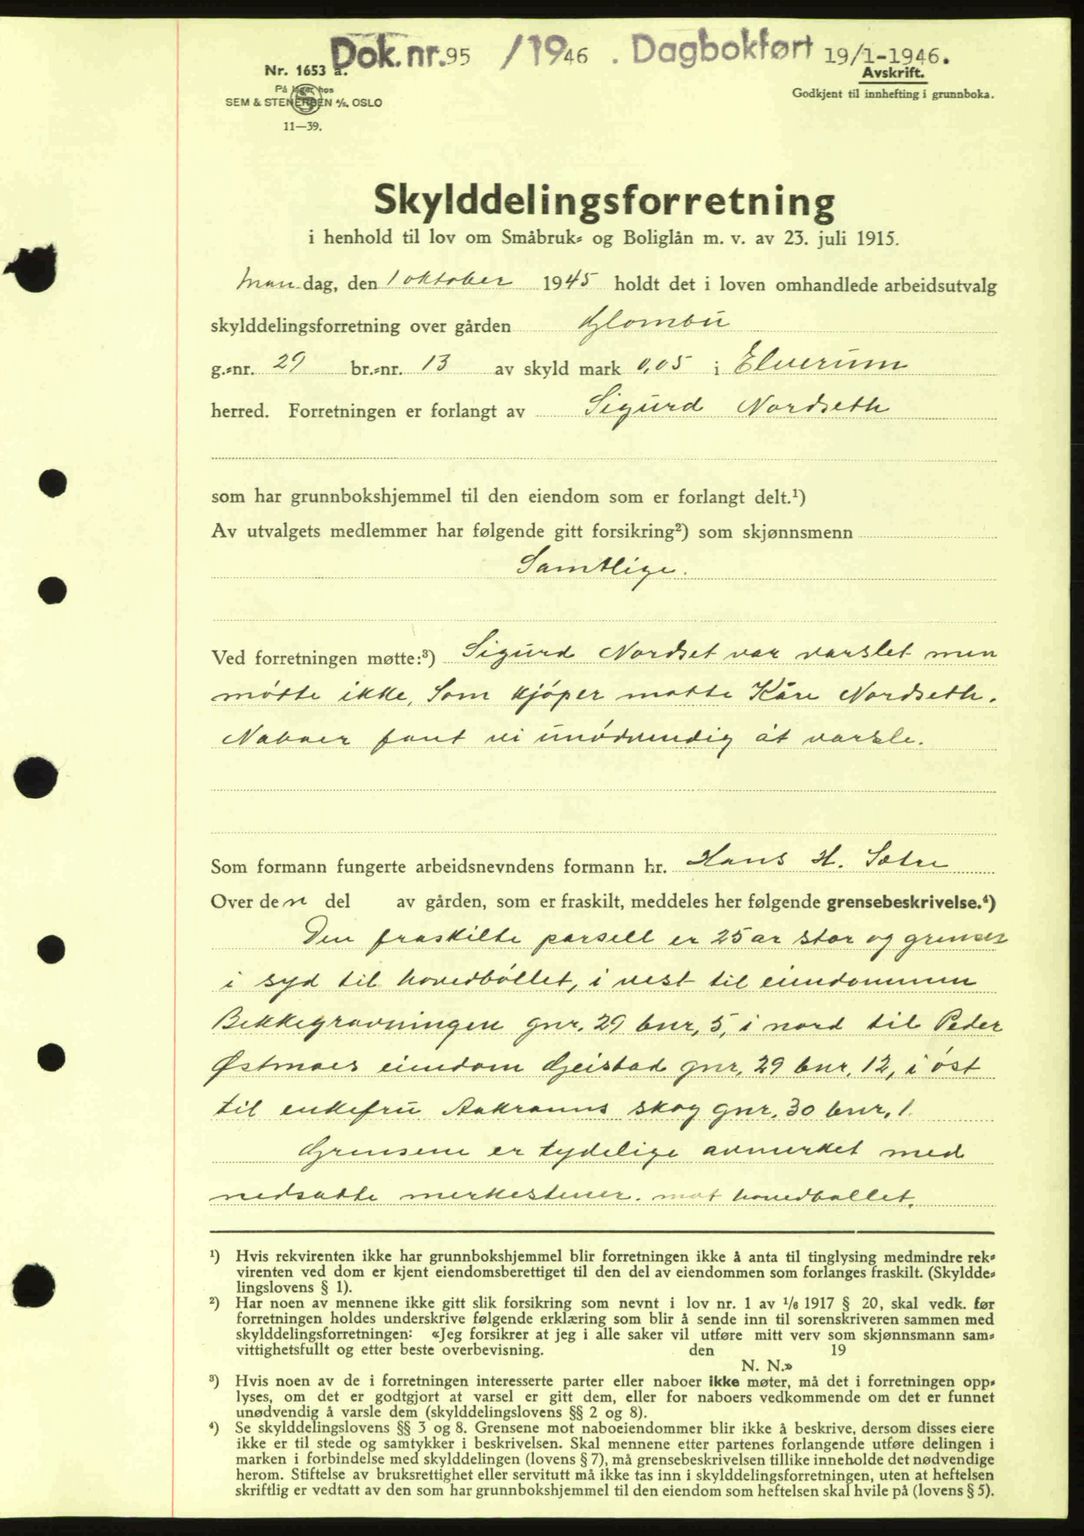 Dok.nr. 95 /1946 . Dagbokført 19/1-1946.
Nr. 1653 a.
På lager hos
SEM & STENERSEN A/S. OSLO
11—39.
Avskrift.
Godkjent til innhefting i grunnboka.
Skylddelingsforretning
i henhold til lov om Småbruk= og Boliglån m. v. av 23. juli 1915.
Man dag, den 1 oktober 1945 holdt det i loven omhandlede arbeidsutvalg
skylddelingsforretning over gården Glombu
g.=nr. 29 br.=nr. 13 av skyld mark 0,05 i Elverum
herred. Forretningen er forlangt av Sigurd Nordseth
som har grunnbokshjemmel til den eiendom som er forlangt delt.¹)
Av utvalgets medlemmer har følgende gitt forsikring²) som skjønnsmenn
Samtlige.
Ved forretningen møtte:³) Sigurd Nordset var varslet men
møtte ikke, Som kjöper møtte Kåre Nordseth.
Naboer fant vi unödvendig åt varsle.
Som formann fungerte arbeidsnevndens formann hr. Hans H. Sætre
Over den del av gården, som er fraskilt, meddeles her følgende grensebeskrivelse.⁴)
Den fraskilte parsell er 25 ar stor og grenser
i syd til hovedböllet, i vest til eiendommen
Bekkegravningen gnr. 29 bnr, 5, i nord til Peder
Østmoes eiendom Geistad gnr, 29 bnr. 12, i öst
til enkefru Aakranns skog gnr. 30 bnr, 1.
Grensene er tydelige avmerket med
nedsatte merkestener. mot hovedbøllet.
¹) Hvis rekvirenten ikke har grunnbokshjemmel blir forretningen ikke å anta til tinglysing medmindre rek=
virenten ved dom er kjent eiendomsberettiget til den del av eiendommen som forlanges fraskilt. (Skyldde=
lingslovens § 1).
²) Har noen av mennene ikke gitt slik forsikring som nevnt i lov nr. 1 av 1/6 1917 § 20, skal vedk. før
forretningen holdes underskrive følgende erklæring som blir å sende inn til sorenskriveren sammen med
skylddelingsforretningen: «Jeg forsikrer at jeg i alle saker vil utføre mitt verv som skjønnsmann sam=
vittighetsfullt og etter beste overbevisning. den 19
N. N.»
³) Hvis noen av de i forretningen interesserte parter eller naboer ikke møter, må det i forretningen opp=
lyses, om det er godtgjort at varsel er gitt dem, eller for naboers vedkommende om det er funnet
unødvendig å varsle dem (skylddelingslovens §§ 2 og 8).
⁴) Se skylddelingslovens §§ 3 og 8. Grensene mot naboeiendommer blir ikke å beskrive, dersom disses eiere
ikke er til stede og samtykker i beskrivelsen. Skal mennene etter partenes forlangende utføre delingen i
marken i forbindelse med skylddelingen (lovens § 7), må grensebeskrivelsen tillike inneholde det nødvendige
herom. Stiftelse av bruksrettighet eller servitutt må ikke tas inn i skylddelingsforretningen, uten at heftelsen
skriftlig er vedtatt av den som har grunnbokshjemmel til den eiendom som heftelsen skal hvile på (lovens § 5).